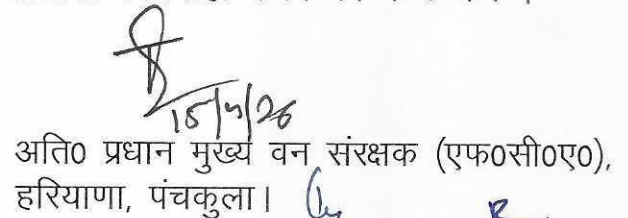 15/4/26
अति० प्रधान मुख्य वन संरक्षक (एफ०सी०ए०),
हरियाणा, पंचकुला।